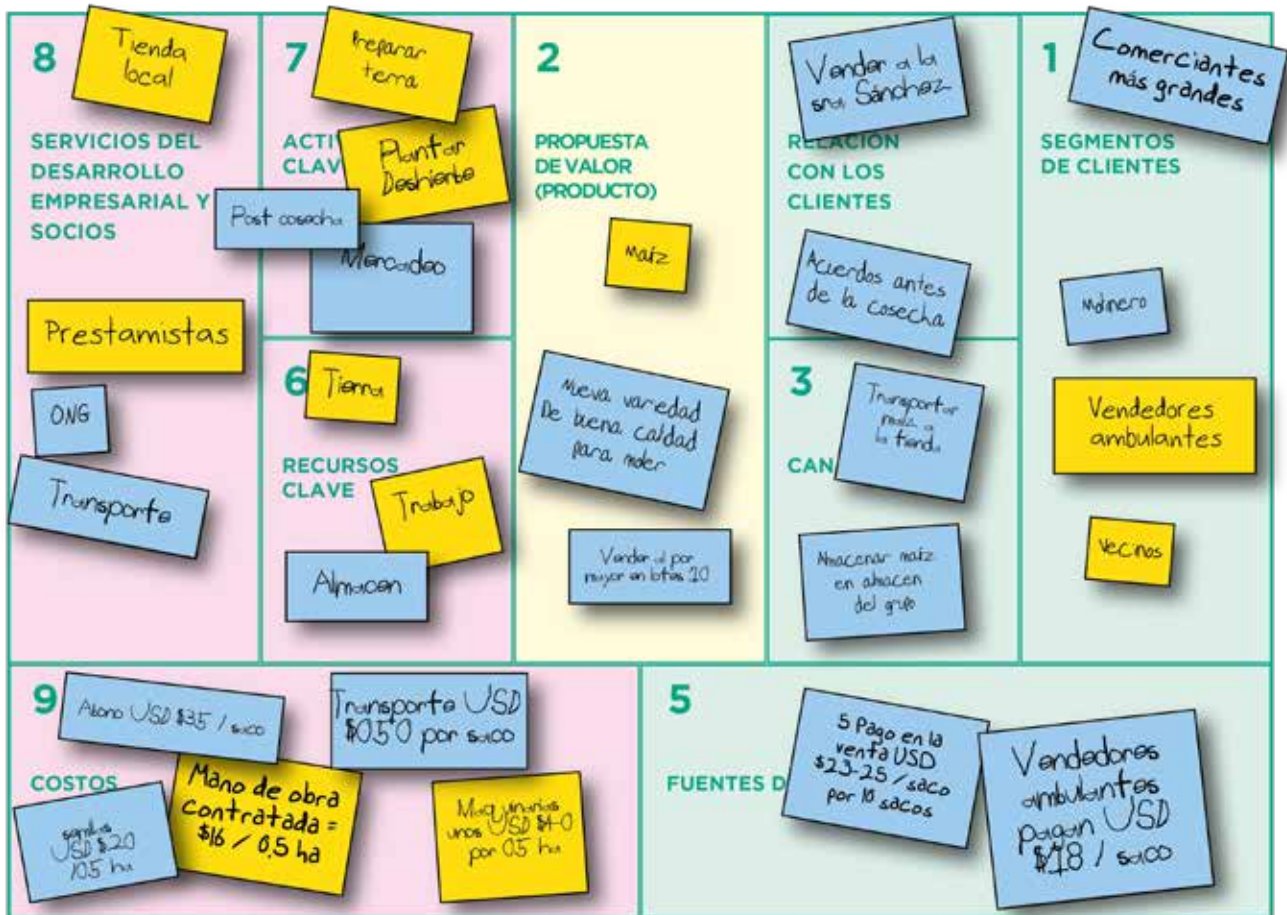 8
Tienda
local
SERVICIOS DEL
DESARROLLO
EMPRESARIAL Y
SOCIOS
Prestamistas
ONG
Transporte
7
Preparar
terra
ACTI
CLAV
Plantar
Deshierbe
Post cosecha
Mercadeo
6
Tierra
RECURSOS
CLAVE
Trabajo
Almacen
2
PROPUESTA
DE VALOR
(PRODUCTO)
Maíz
Nueva variedad
De buena calidad
para moler
Vender al por
mayor en lotes 10
Vender a la
sra. Sánchez
RELACIÓN
CON LOS
CLIENTES
Acuerdos antes
de la cosecha
3
Transportar
maíz a
la tienda
CAN
Almacenar maíz
en almacen
del grupo
1
Comerciantes
más grandes
SEGMENTOS
DE CLIENTES
Molinero
Vendedores
ambulantes
Vecinos
9
Abono USD $35 / saco
Transporte USD
$0.50 por saco
COSTOS
semillas
USD $20
/0.5 ha
Mano de obra
contratada =
$16 / 0,5 ha
Maquinarias
unos USD $40
por 0.5 ha
5
FUENTES D
5 Pago en la
venta USD
$23-25 / saco
por 10 sacos
Vendedores
ambulantes
pagan USD
$18 / saco